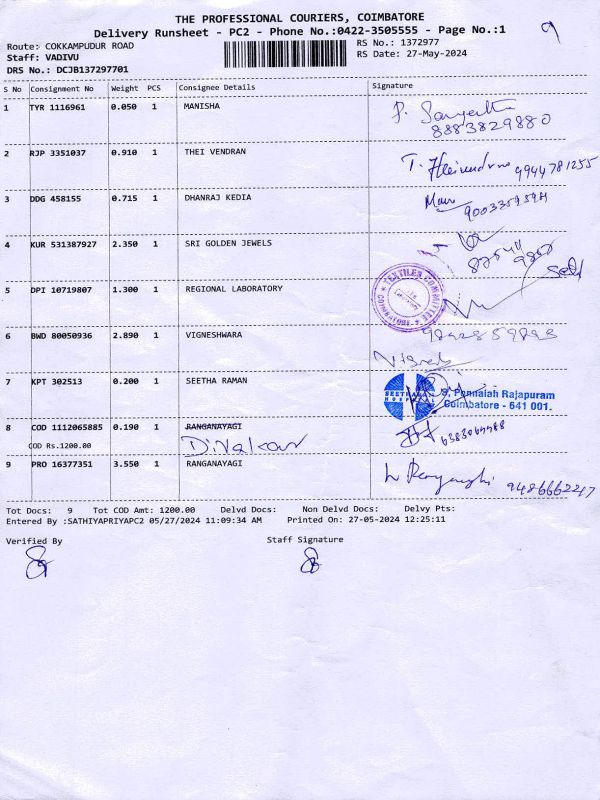 THE PROFESSIONAL COURIERS, COIMBATORE
Delivery Runsheet - PC2 - Phone No.:0422-3505555 - Page No.:1
9
Route: COKKAMPUDUR ROAD RS No.: 1372977
Staff: VADIVU RS Date: 27-May-2024
DRS No.: DCJB137297701
S No Consignment No Weight PCS Consignee Details Signature
1 TYR 1116961 0.050 1 MANISHA
8883829880
2 RJP 3351037 0.910 1 THEI VENDRAN
9944781255
3 DDG 458155 0.715 1 DHANRAJ KEDIA
4 KUR 531387927 2.350 1 SRI GOLDEN JEWELS
5 DPI 10719807 1.300 1 REGIONAL LABORATORY
TEXTILES COMMITTEE
6 BWD 80050936 2.890 1 VIGNESHWARA
7 KPT 302513 0.200 1 SEETHA RAMAN
HOSPITAL
9, Ponnaiah Rajapuram
Coimbatore - 641 001.
8 COD 1112065885 0.190 1 RANGANAYAGI
COD Rs.1200.00 Divakar
9 PRO 16377351 3.550 1 RANGANAYAGI
9486662247
Tot Docs: 9 Tot COD Amt: 1200.00 Delvd Docs: Non Delvd Docs: Delvy Pts:
Entered By :SATHIYAPRIYAPC2 05/27/2024 11:09:34 AM Printed On: 27-05-2024 12:25:11
Verified By Staff Signature